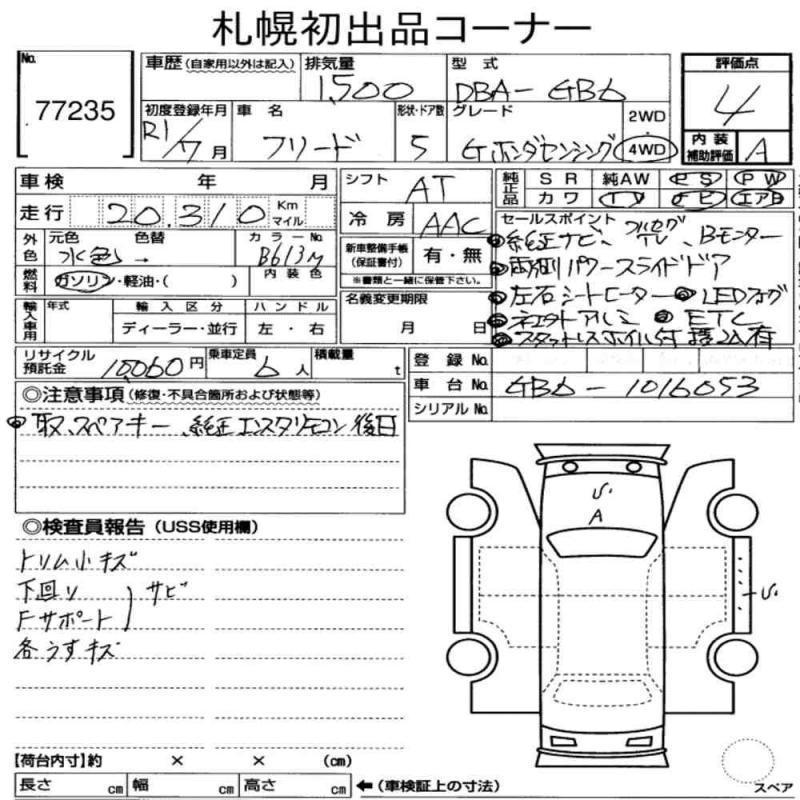 札幌初出品コーナー
No. 77235
車歴(自家用以外は記入) 排気量 1,500 型式 DBA-GB6 評価点 4
初度登録年月 R1/7月 車名 フリード 形状・ドア数 5 グレード Gホンダセンシング 2WD 4WD 内装補助評価 A
車検 年 月 シフト AT 純正品 SR 純AW PS PW
カワ TV ナビ エアB
走行 20,310 Km マイル 冷房 AAC
外色 元色 水色 色替 → カラーNo. B613M 内装色
新車整備手帳(保証書付) 有・無
※書類と一緒に保管下さい。
燃料 ガソリン・軽油・( )
セールスポイント
純正ナビ、フルセグTV、Bモニター
両側パワースライドドア
左右シートヒーター LEDフォグ
ETC
輸入車用 年式 輸入区分 ハンドル
ディーラー・並行 左・右
名義変更期限 月 日
リサイクル預託金 10,060円 乗車定員 6人 積載量 t
登録No.
車台No. GB6-1016053
シリアルNo.
◎注意事項(修復・不具合箇所および状態等)
取、スペアキー、純正エンスタリモコン後日
◎検査員報告(USS使用欄)
トリム小キズ
下回り
Fサポート
サビ
各うすキズ
S
A
S
【荷台内寸】約 × × (cm)
長さ cm 幅 cm 高さ cm ←(車検証上の寸法)
スペア